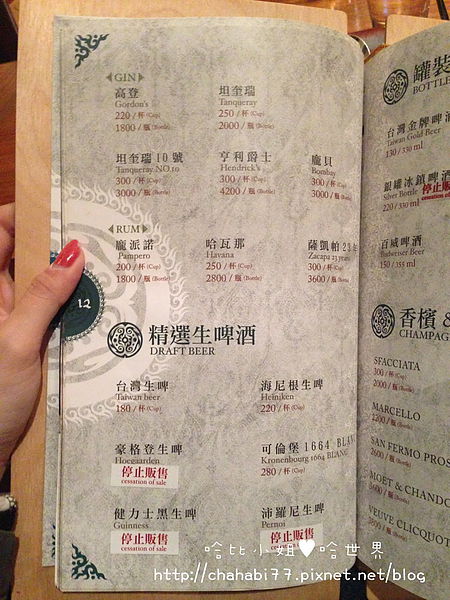 ◀GIN▶
高登
Gordon's
220/杯(Cup)
1800/瓶(Bottle)
坦奎瑞
Tanqueray
250/杯(Cup)
2000/瓶(Bottle)
坦奎瑞10號
Tanqueray NO.10
300/杯(Cup)
3000/瓶(Bottle)
亨利爵士
Hendrick's
300/杯(Cup)
4200/瓶(Bottle)
龐貝
Bombay
300/杯(Cup)
3000/瓶(Bottle)
◀RUM▶
龐派諾
Pampero
200/杯(Cup)
1800/瓶(Bottle)
哈瓦那
Havana
250/杯(Cup)
2800/瓶(Bottle)
薩凱帕23年
Zacapa 23 years
300/杯(Cup)
3600/瓶(Bottle)
12
精選生啤酒
DRAFT BEER
台灣生啤
Taiwan beer
180/杯(Cup)
海尼根生啤
Heiniken
220/杯(Cup)
豪格登生啤
Hoegaarden
停止販售
cessation of sale
可倫堡1664 BLANC
Kronenbourg 1664 BLANC
280/杯(Cup)
健力士黑生啤
Guinness
停止販售
cessation of sale
沛羅尼生啤
Pernoi
停止販售
cessation of sale
罐裝
BOTTLE
台灣金牌啤酒
Taiwan Gold Beer
130/330 ml
銀罐冰鎮啤酒
Silver Bottle
停止販
cessation
220/330 ml
百威啤酒
Budweiser Beer
150/355 ml
香檳 &
CHAMPAG
SFACCIATA
300/杯(Cup)
2000/瓶(Bottle)
MARCELLO
2200/瓶(Bottle)
SAN FERMO PROS
2600/瓶(Bottle)
MOËT & CHANDO
3600/瓶(Bottle)
VEUVE CLICQUOT
哈比小姐♥哈世界
http://chahabi77.pixnet.net/blog